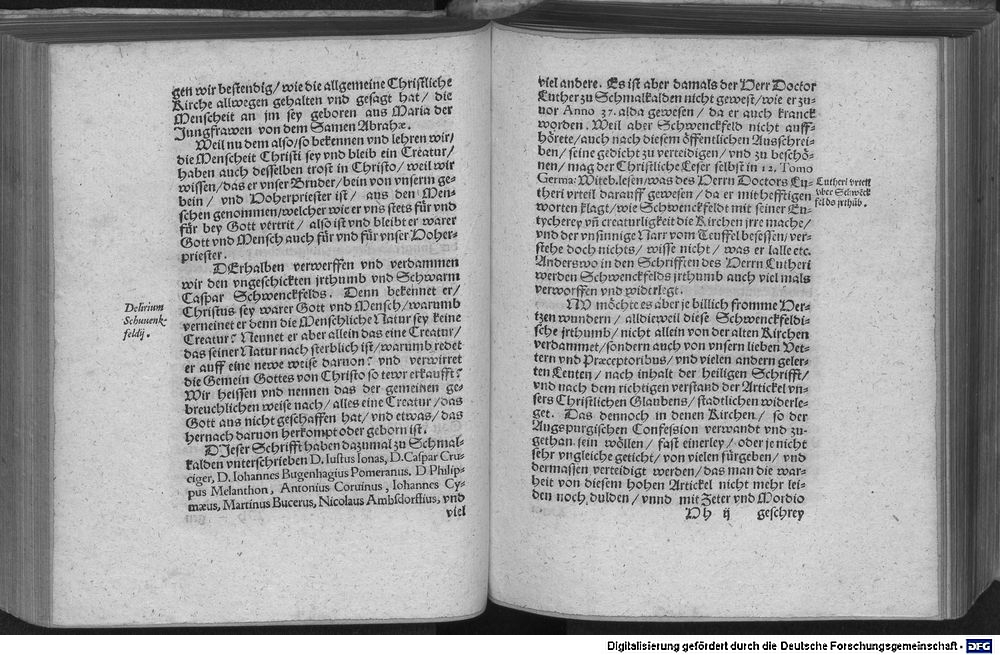 gen wir bestendig/ wie die allgemeine Christliche
Kirche allwegen gehalten vnd gesagt hat/ die
Menscheit an jm sey geboren aus Maria der
Jungfrawen von dem Samen Abrahæ.
Weil nu dem also/ so bekennen vnd lehren wir/
die Menscheit Christi sey vnd bleib ein Creatur/
haben auch desselben trost in Christo/ weil wir
wissen/ das er vnser Bruder/ bein von vnserm ge-
bein/ vnd Hoherpriester ist/ aus den Men-
schen genommen/ welcher wie er vns stets für vnd
für bey Gott vertrit/ also ist vnd bleibt er warer
Gott vnd Mensch auch für vnd für vnser Hoher-
priester.
DErhalben verwerffen vnd verdammen
wir den vngeschickten jrthumb vnd Schwarm
Caspar Schwenckfelds. Denn bekennet er/
Christus sey warer Gott vnd Mensch/ warumb
verneinet er denn die Menschliche Natur sey keine
Creatur? Nennet er aber allein das eine Creatur/
das seiner Natur nach sterblich ist/ warumb redet
er auff eine newe weise daruon? vnd verwirret
die Gemein Gottes von Christo so tewr erkaufft?
Wir heissen vnd nennen das der gemeinen ge-
breuchlichen weise nach/ alles eine Creatur/ das
Gott aus nicht geschaffen hat/ vnd etwas/ das
hernach daruon herkompt oder geborn ist.
DJeser Schrifft haben dazumal zu Schmal-
kalden vnterschrieben D. Iustus Ionas, D. Caspar Cru-
ciger, D. Iohannes Bugenhagius Pomeranus. D Philip-
pus Melanthon, Antonius Coruinus, Iohannes Cy-
mæus, Martinus Bucerus, Nicolaus Ambsdorffius, vnd
viel
Delirium
Schuuenk-
feldij.
viel andere. Es ist aber damals der Herr Doctor
Luther zu Schmalkalden nicht gewest/ wie er zu-
uor Anno 37. alda gewesen/ da er auch kranck
worden. Weil aber Schwenckfeld nicht auff-
hörete/ auch nach diesem öffentlichen Ausschrei-
ben/ seine gedicht zu verteidigen/ vnd zu beschö-
nen/ mag der Christliche Leser selbst in 12. Tomo
Germa: Witeb. lesen/ was des Herrn Doctors Lu-
theri vrteil darauff gewesen/ da er mit hefftigen
worten klagt/ wie Schwenckfeldt mit seiner Eu-
tycherey vñ creaturligkeit die Kirchen jrre mache/
vnd der vnsinnige Narr vom Teuffel besessen/ ver-
stehe doch nichts/ wisse nicht/ was er lalle etc.
Anderswo in den Schrifften des Herrn Lutheri
werden Schwenckfelds jrthumb auch viel mals
verworffen vnd widerlegt.
NV möchte es aber je billich fromme Her-
tzen wundern/ alldieweil diese Schwenckfeldi-
sche jrthumb/ nicht allein von der alten Kirchen
verdammet/ sondern auch von vnsern lieben Vet-
tern vnd Præceptoribus/ vnd vielen andern geler-
ten Leuten/ nach inhalt der heiligen Schrifft/
vnd nach dem richtigen verstand der Artickel vn-
sers Christlichen Glaubens/ stadtlichen widerle-
get. Das dennoch in denen Kirchen/ so der
Augspurgischen Confession verwandt vnd zu-
gethan sein wöllen/ fast einerley/ oder je nicht
sehr vngleiche geticht/ von vielen fürgeben/ vnd
dermassen verteidigt werden/ das man die war-
heit von diesem hohen Artickel nicht mehr lei-
den noch dulden/ vnnd mit Zeter vnd Mordio
Hh ij geschrey
Lutheri vrteil
vber Schwēck
feldo jrthūb.
Digitalisierung gefördert durch die Deutsche Forschungsgemeinschaft - DFG